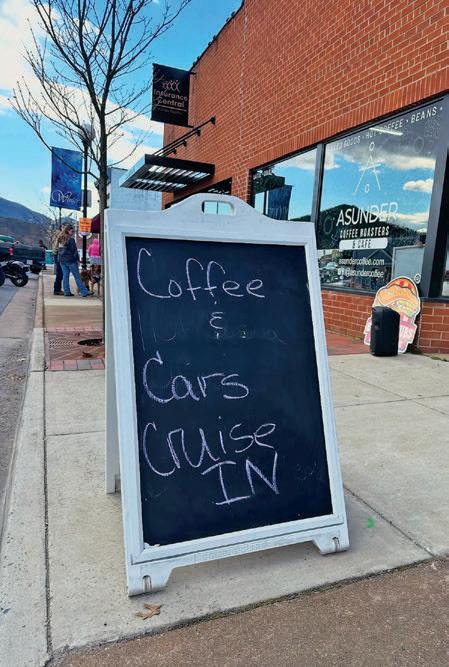 Insurance
Central
BAKED GOODS • HOT COFFEE • BEANS •
ASUNDER
COFFEE ROASTERS
& CAFE
asundercoffee.com
@asundercoffee
Coffee
&
Cars
Cruise
IN